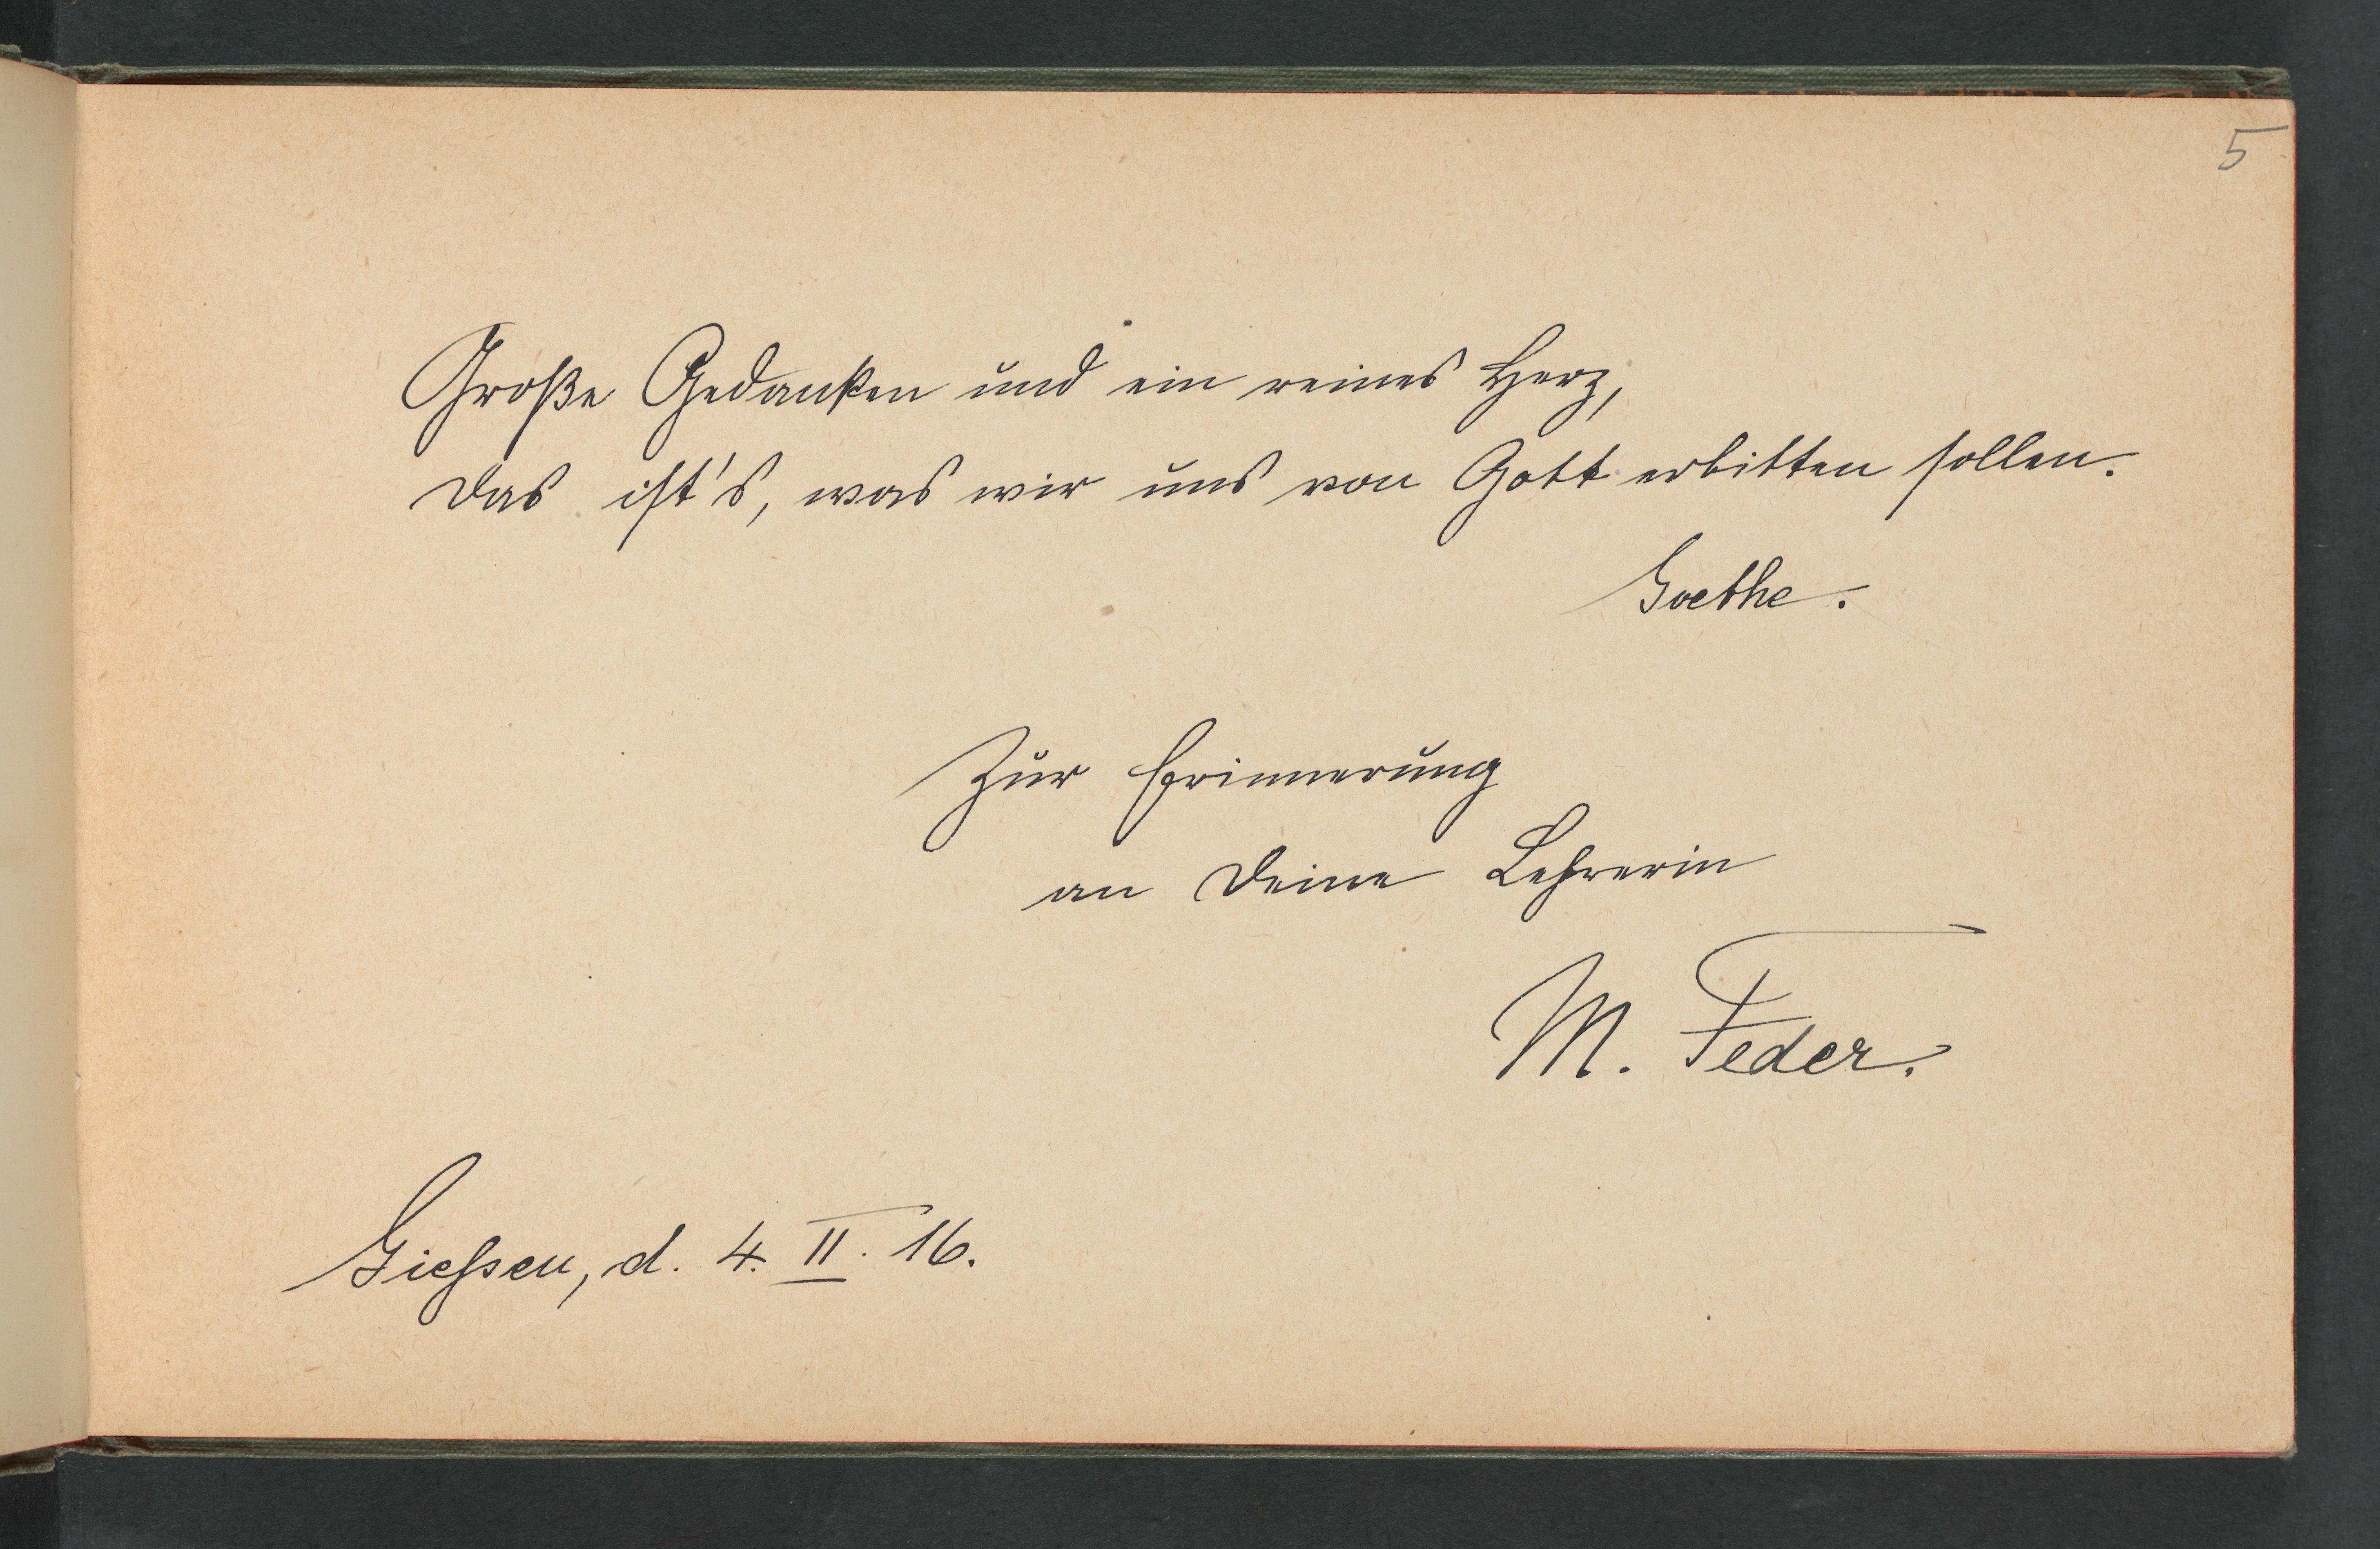 5
Große Gedanken und ein reines Herz,
das ist's, was wir uns von Gott erbitten sollen.
Goethe.
Zur Erinnerung
an Deine Lehrerin
M. Feder.
Giessen, d. 4. II. 16.